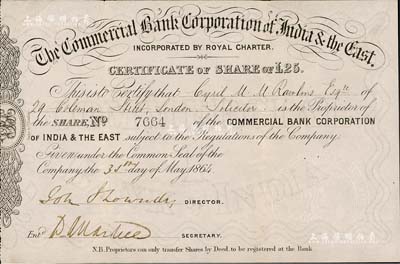 The Commercial Bank Corporation of India & the East.
INCORPORATED BY ROYAL CHARTER.
CERTIFICATE OF SHARE OF £25.
This is to Certify that Cyril M. M. Rawlins Esqre of
29 Coleman Street, London Solicitor is the Proprietor of
the SHARE, No 7664 of the COMMERCIAL BANK CORPORATION
OF INDIA & THE EAST subject to the Regulations of the Company.
Given under the Common Seal of the
Company, the 3 day of May 1864.
DIRECTOR.
Entd
SECRETARY.
N.B. Proprietors can only transfer Shares by Deed to be registered at the Bank